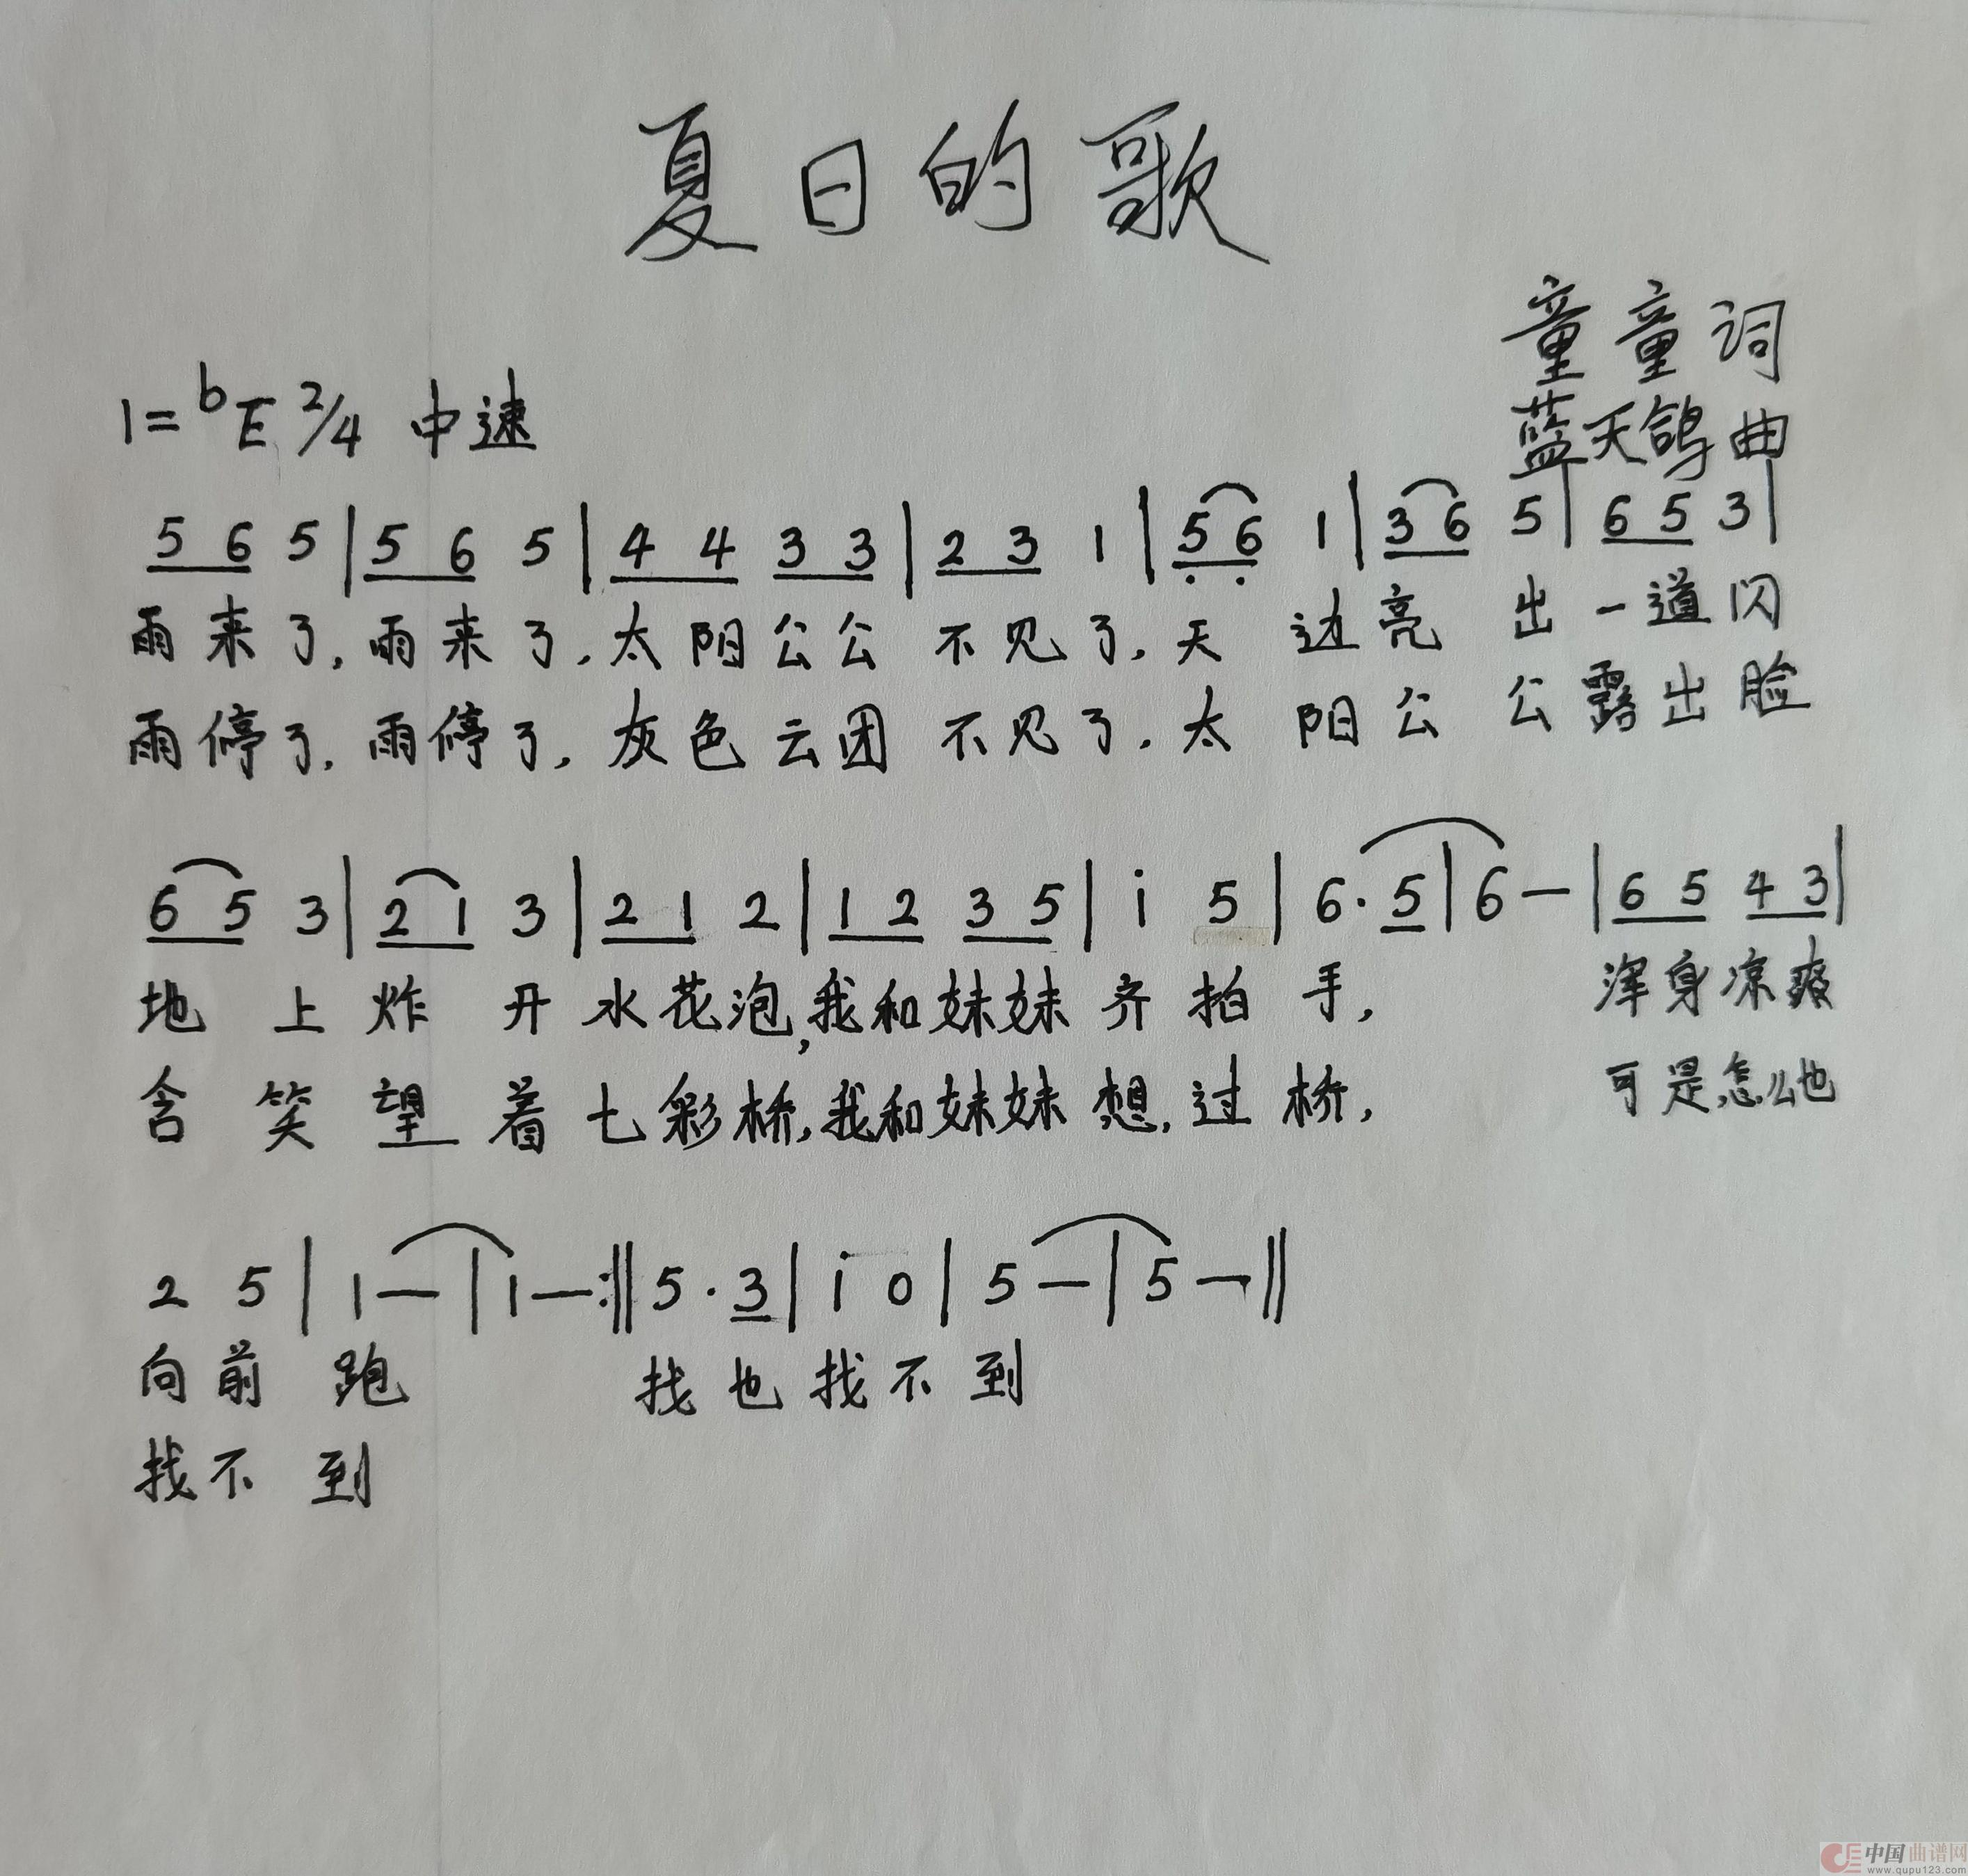 夏日的歌
童童词
1=ᵇE 2/4 中速
蓝天鸽曲
5 6 5 | 5 6 5 | 4 4 3 3 | 2 3 1 | 5̣ 6̣ 1 | 3 6 5 | 6 5 3 |
雨来了,雨来了,太阳公公不见了,天边亮出一道闪
雨停了,雨停了,灰色云团不见了,太阳公公露出脸
6 5 3 | 2 1 3 | 2 1 2 | 1 2 3 5 | i 5 | 6· 5 | 6 — | 6 5 4 3 |
地上炸开水花泡,我和妹妹齐拍手,浑身凉爽
含笑望着七彩桥,我和妹妹想,过桥,可是,怎么也
2 5 | 1 — | 1 — :‖ 5· 3 | i 0 | 5 — | 5 — ‖
向前跑 找也找不到
找不到
中国曲谱网
www.qupu123.com